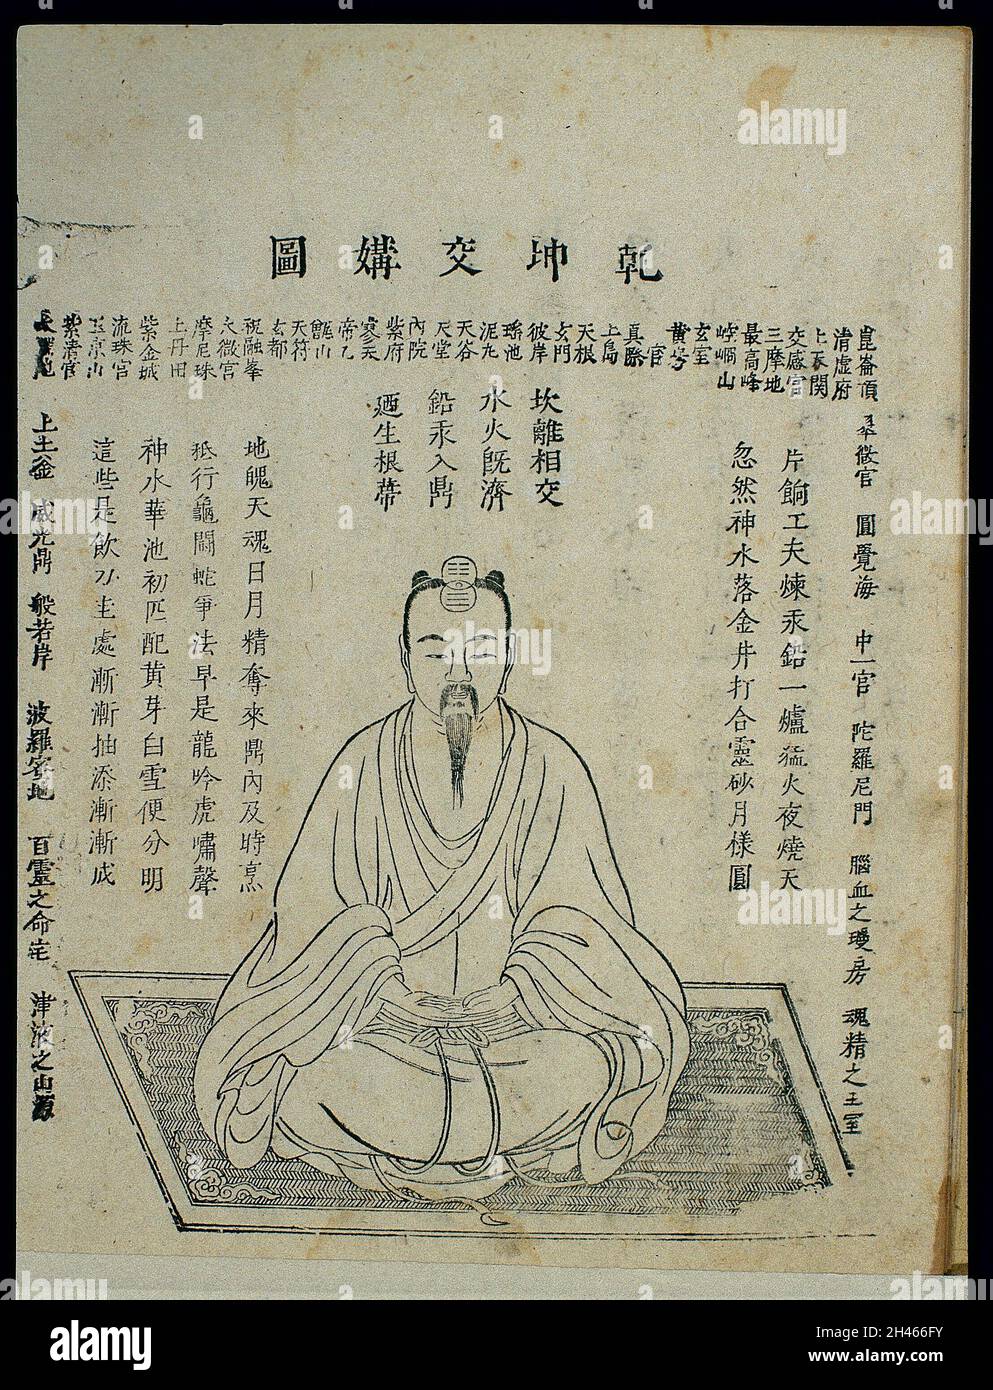 乾坤交媾圖
崑崙頂
清虛府
上天関
交感宮
三摩地
最高峰
崆峒山
玄室
黄房
宫
真際
上島
天根
玄門
彼岸
瑤池
泥丸
天谷
天堂
內院
紫府
寥天
帝乙
甑山
天符
玄都
祝融峯
太微宮
摩尼珠
上丹田
紫金城
流珠宮
玉京山
紫清宮
圓覺海
中一宮
陀羅尼門
腦血之瓊房
魂精之玉室
片餉工夫煉汞鉛一爐猛火夜燒天
忽然神水落金井打合靈砂月樣圓
坎離相交
水火旣濟
鉛汞入鼎
廼生根蒂
地魄天魂日月精奪來鼎內及時烹
祗行龜鬪蛇爭法早是龍吟虎嘯聲
神水華池初匹配黄芽白雪便分明
這些是飲刀圭處漸漸抽添漸漸成
上土釜
威光鼎
般若岸
波羅密地
百靈之命宅
津液之山源
alamy
Image ID: 2H466FY
www.alamy.com